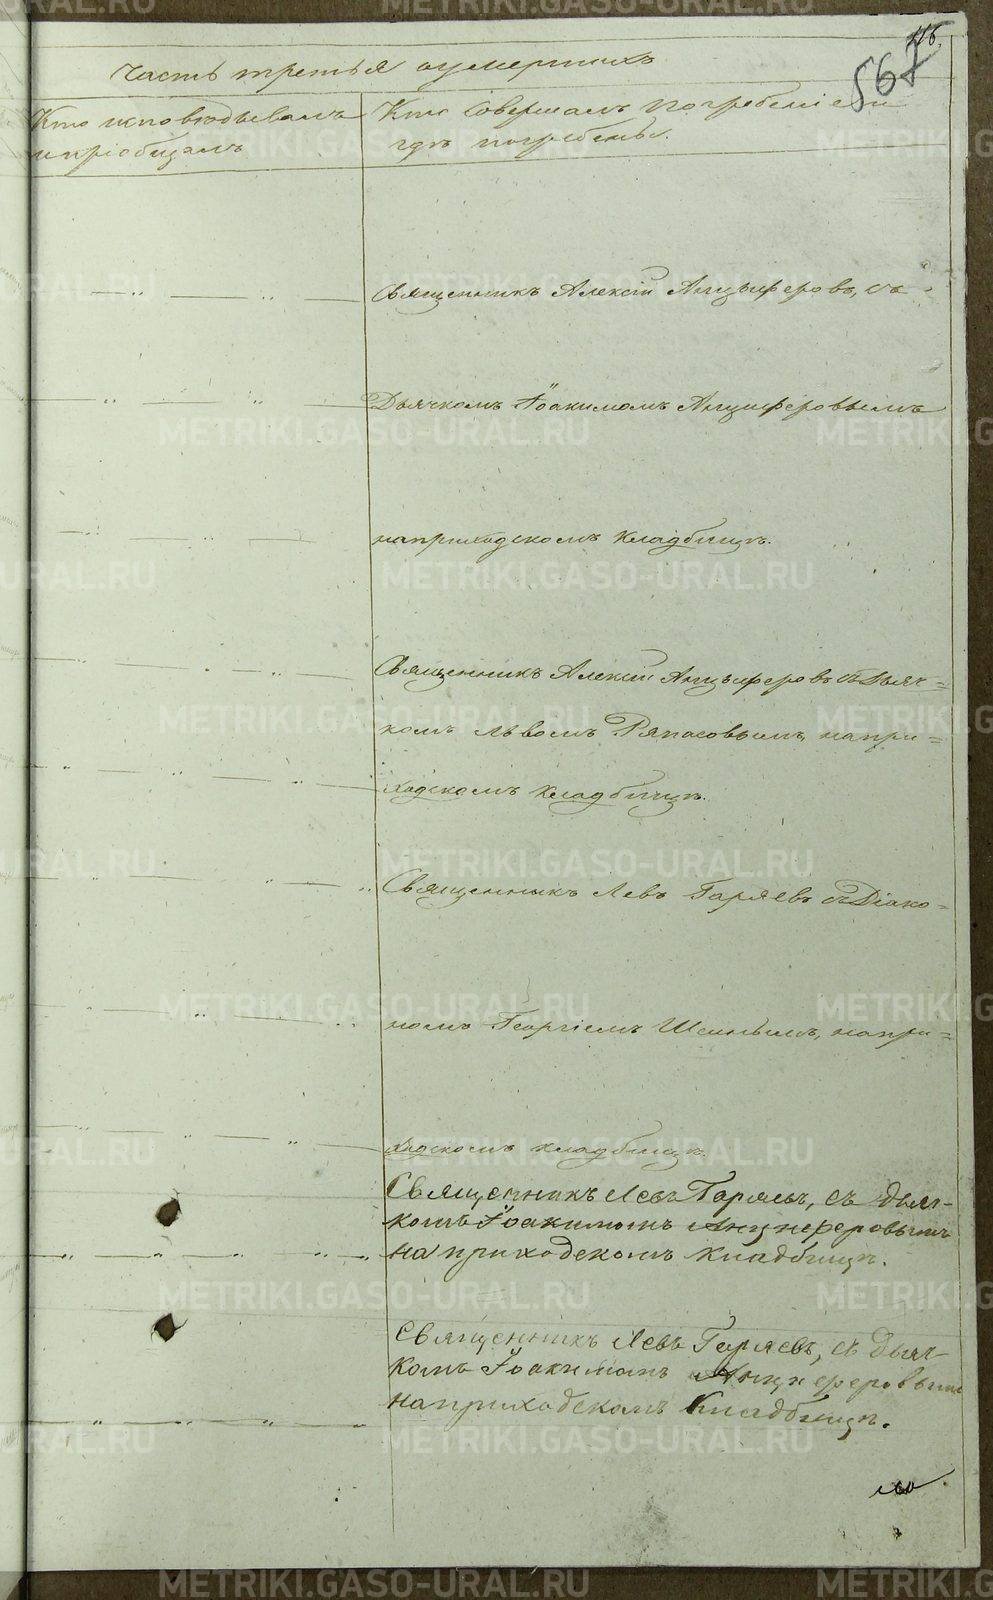 116.
567
Часть третья о умершихъ
Кто исповѣдывалъ
и пріобщалъ
Кто Совершалъ погребеніе и
гдѣ погребены.
Священникъ Алексій Анцыферовъ, съ
Дьячкомъ Іоакимомъ Анцыферовымъ
на приходскомъ кладбищѣ.
Священникъ Алексій Анцыферовъ съ Дьяч=
комъ Львомъ Ряпасовымъ, на при=
ходскомъ кладбищѣ.
Священникъ Левъ Гаряевъ съ Діако=
номъ Георгіемъ Шеинымъ, на при=
ходскомъ кладбищѣ.
Священникъ Левъ Гаряевъ, съ дьяч-
комъ Іоакимомъ Анциферовымъ
на приходскомъ кладбищѣ.
Священникъ Левъ Гаряевъ, съ дьяч-
комъ Іоакимомъ Анциферовымъ
на приходскомъ кладбищѣ.
METRIKI.GASO-URAL.RU